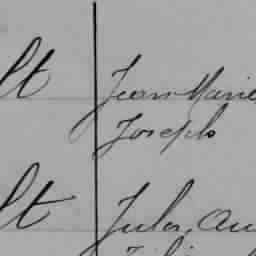 lt Jean Marie
Joseph
lt Jules, Au